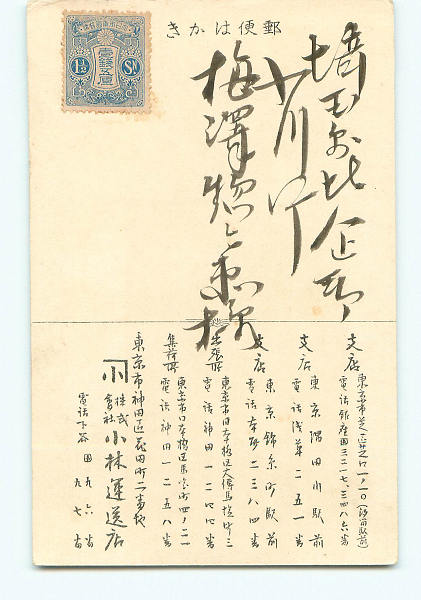 郵便はかき
1½ Sn
埼玉県比企郡
小川町
梅澤惣兵衛様
支店
東京市芝区芝口一ノ一〇(汐留駅前)
電話銀座 三二一七、三四八六番
支店
東京隅田川駅前
電話浅草二五一番
支店
東京錦糸町駅前
電話本所二三八四番
出張所
東京市日本橋区大傳馬塩町三
集荷所
東京市日本橋区馬喰町四ノ二一
電話神田一二五八番
東京市神田区花田町二番地
株式會社 小林運送店
電話下谷 九六番 九七番